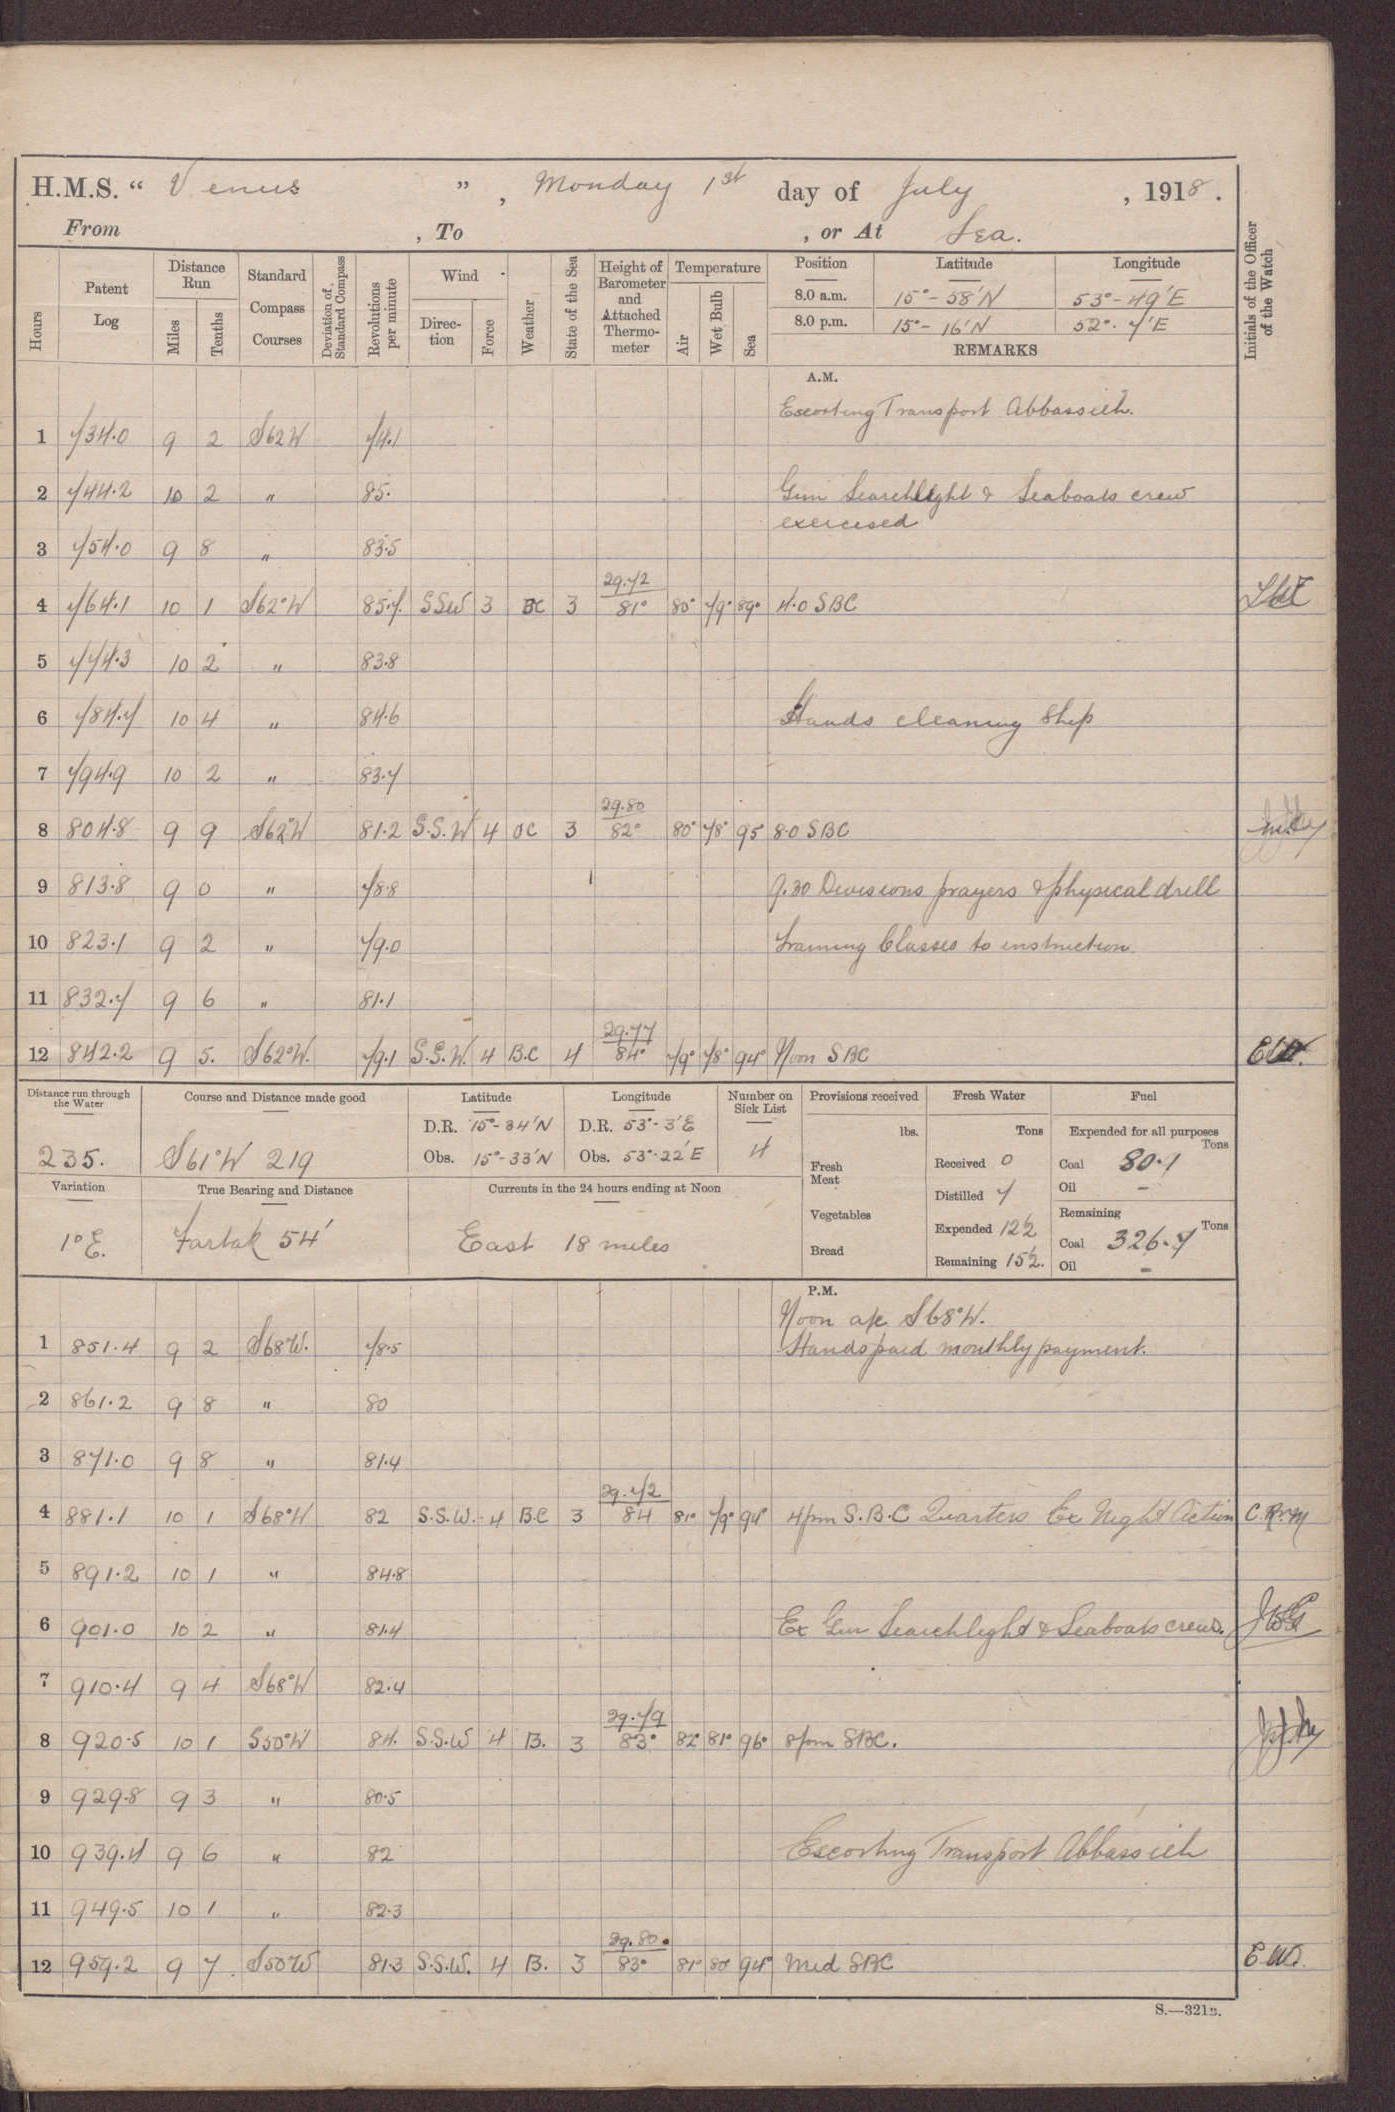 H.M.S. “ Venus ” , Monday 1st day of July , 1918 .
From , To , or At Sea.
Hours Patent Log Distance Run Miles Tenths Standard Compass Courses Deviation of Standard Compass Revolutions per minute Wind Direc-tion Force Weather State of the Sea Height of Barometer and Attached Thermo-meter Temperature Air Wet Bulb Sea Position Latitude Longitude Initials of the Officer of the Watch
8.0 a.m. 15°-58'N 53°-49'E
8.0 p.m. 15°-16'N 52°.7'E
REMARKS
A.M.
Escorting Transport Abbassieh.
1 734.0 9 2 S62W 74.1
2 744.2 10 2 " 85. Gun Searchlight & Seaboats crew
exercised
3 754.0 9 8 " 83.5
29.72
4 764.1 10 1 S62°W 85.7 SSW 3 BC 3 81° 80° 79° 89° 4.0 SBC
5 774.3 10 2 " 83.8
6 784.7 10 4 " 84.6 Hands cleaning Ship
7 794.9 10 2 " 83.7
29.80
8 804.8 9 9 S62°W 81.2 S.S.W 4 OC 3 82° 80° 78° 95 8.0 SBC
9 813.8 9 0 " 78.8 9.30 Divisions prayers & physical drill
10 823.1 9 2 " 79.0 Training Classes to instruction.
11 832.7 9 6 " 81.1
29.77
12 842.2 9 5. S62°W. 79.1 S.S.W. 4 B.C 4 84° 79° 78° 94° Noon SBC
Distance run through the Water Course and Distance made good Latitude Longitude Number on Sick List Provisions received Fresh Water Fuel
D.R. 15°-34'N D.R. 53°-3'E lbs. Tons Expended for all purposes Tons
235. S61°W 219 Obs. 15°-33'N Obs. 53°-22'E 4 Fresh Meat Received 0 Coal 80.1
Oil -
Variation True Bearing and Distance Currents in the 24 hours ending at Noon Distilled 7 Remaining Tons
Vegetables Expended 12½
1°E. Fartak 54' East 18 miles Coal 326.7
Bread Remaining 15½. Oil -
P.M.
Noon a/c S68°W.
1 851.4 9 2 S68W. 78.5 Hands paid monthly payment.
2 861.2 9 8 " 80
3 871.0 9 8 " 81.4
29.72
4 881.1 10 1 S68°W 82 S.S.W. 4 B.C 3 84 81° 79° 94° 4pm S.B.C Quarters Ex Night Action
5 891.2 10 1 " 84.8
6 901.0 10 2 " 81.4 Ex Gun Searchlight & Seaboats crews.
7 910.4 9 4 S68°W 82.4
29.79
8 920.5 10 1 S50°W 84. S.S.W 4 B. 3 83° 82° 81° 96° 8pm SBC.
9 929.8 9 3 " 80.5
10 939.4 9 6 " 82 Escorting Transport Abbassieh
11 949.5 10 1 " 82.3
29.80.
12 959.2 9 7. S50W 81.3 S.S.W. 4 B. 3 83° 81° 80° 94° Mid SBC
S.—321B.